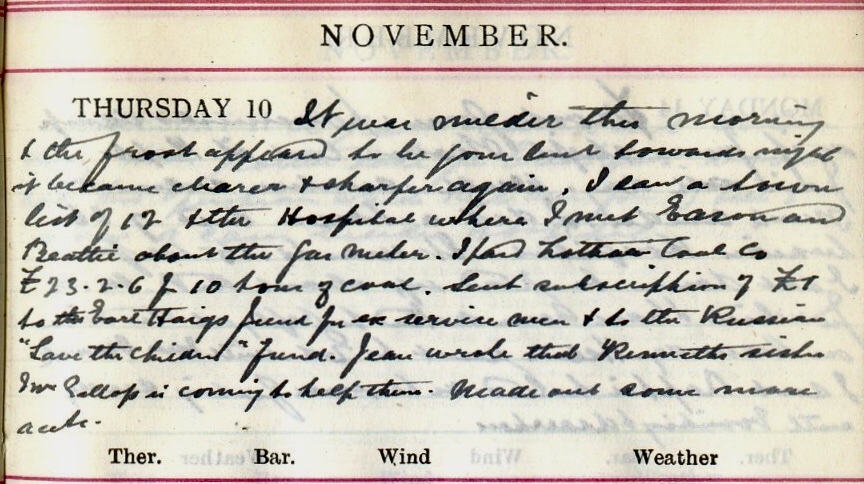 NOVEMBER.
THURSDAY 10 It was milder this morning
& the frost appeared to be gone but towards night
it became clearer & sharper again. I saw a town
list of 12 & the Hospital where I met Eason and
Beattie about the Gas meter. I paid Lothian Coal Co
£23-2-6 for 10 tons of coal. Sent subscription of £1
to the Earl Haigs fund for ex service men & to the Russian
"Save the Children" fund. Jean wrote that Kenneths sister
Mrs Gallop is coming to help them. Made out some more
accts.
Ther. Bar. Wind Weather